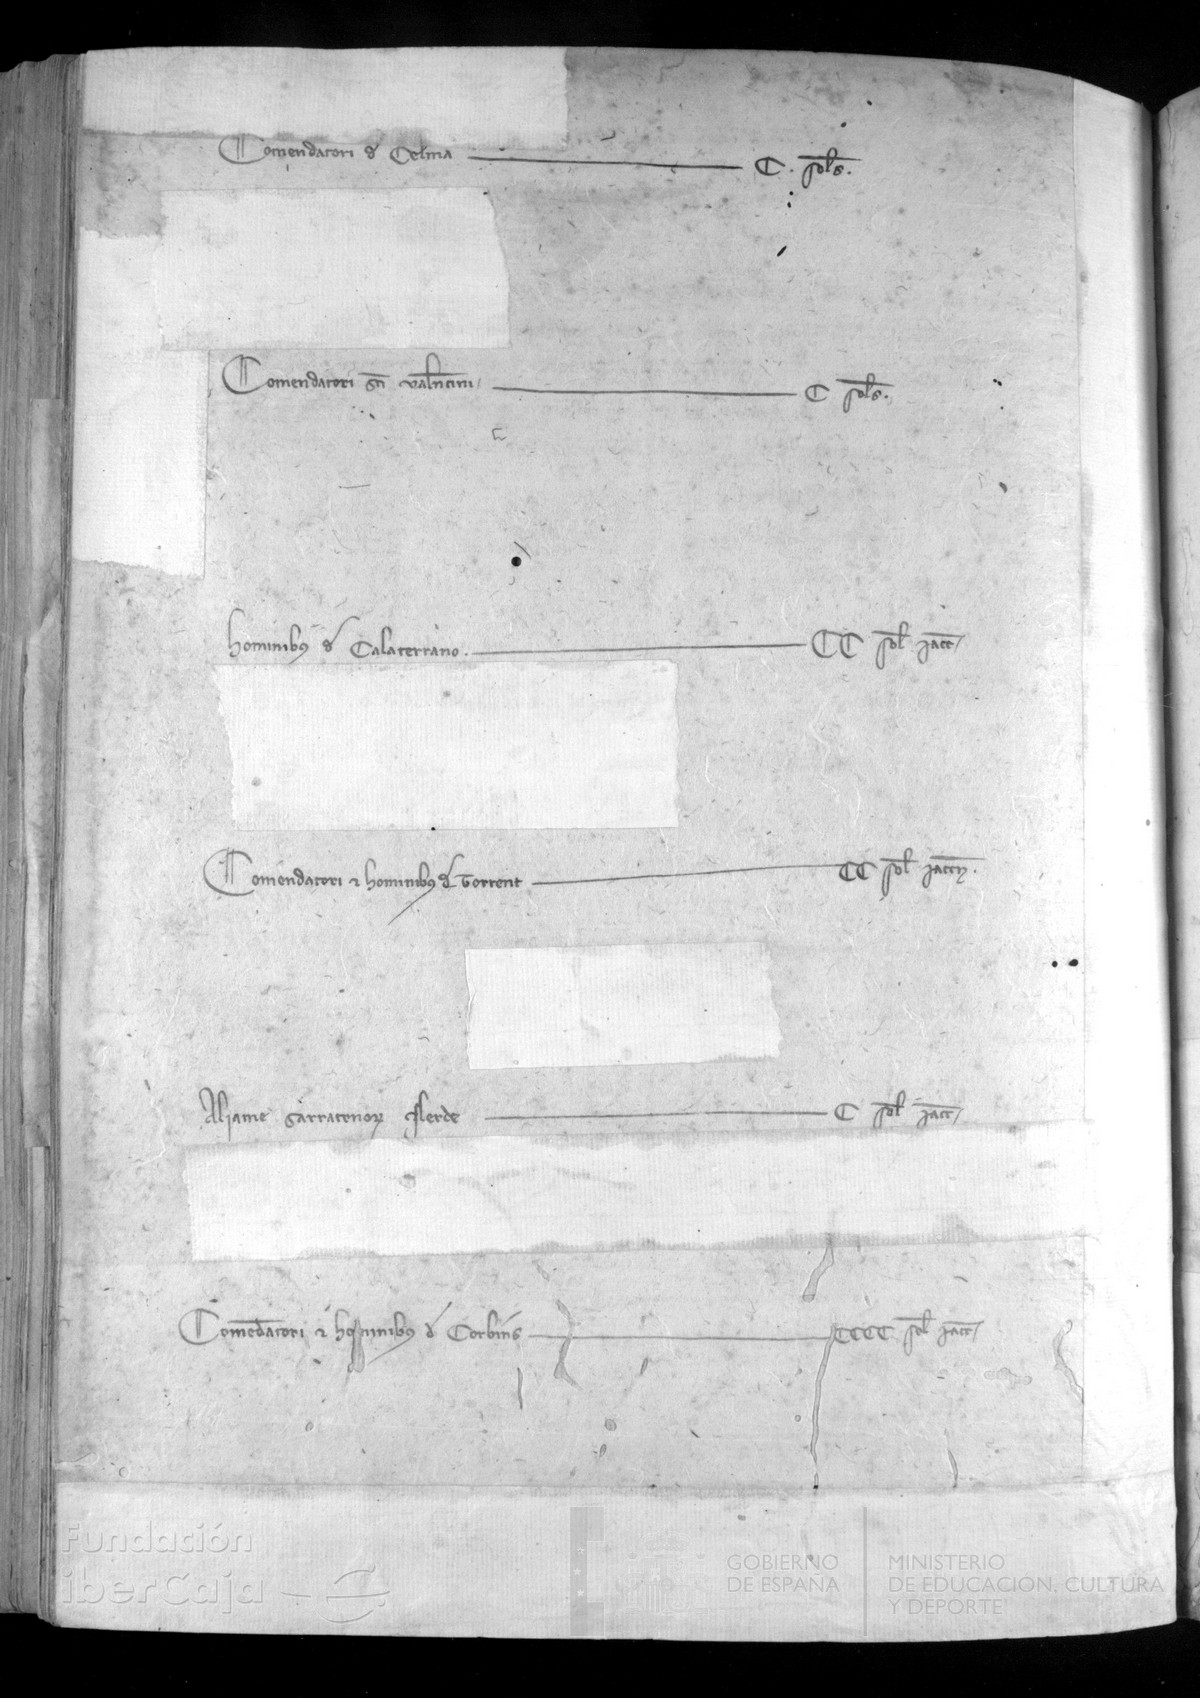 Comendatori d Celma C. sols.
Comendatori sci valentini C sols.
hominibus d Calaterrano. CC sol jacc
Comendatori et hominibus d Torrent CC sol jaccn.
Aljame sarracenorum Ilerde C sol jacc
Comendatori et hominibus d Corbins CCCC sol jacc
Fundación
iberCaja
GOBIERNO
DE ESPAÑA
MINISTERIO
DE EDUCACIÓN, CULTURA
Y DEPORTE